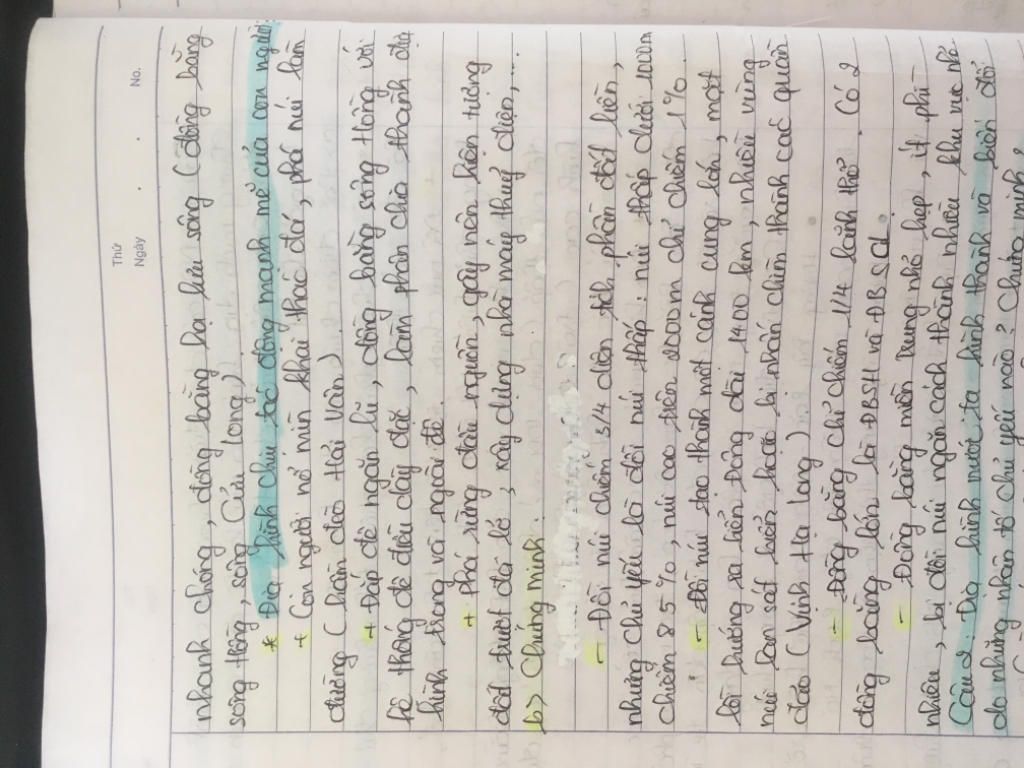 Thứ
Ngày . . No.
nhanh chóng, đồng bằng hạ lưu sông (đồng bằng
sông Hồng, sông Cửu Long)
* Địa hình chịu tác động mạnh mẽ của con người:
+ Con người nổ mìn khai thác đá, phá núi làm
đường (hầm đèo Hải Vân)
+ Đắp đê ngăn lũ, đồng bằng sông Hồng với
hệ thống đê điều dày đặc, làm phân chia thành địa
hình trong và ngoài đê.
+ Phá rừng đầu nguồn, gây nên hiện tượng
đất trượt đá lở, xây dựng nhà máy thuỷ điện,...
b> Chứng minh:
- Đồi núi chiếm 3/4 diện tích phần đất liền,
nhưng chủ yếu là đồi núi thấp: núi thấp dưới 1000m
chiếm 85%, núi cao trên 2000m chỉ chiếm 1%.
- Đồi núi tạo thành một cánh cung lớn, mặt
lồi hướng ra biển Đông dài 1400 km, nhiều vùng
núi lan sát biển hoặc bị nhấn chìm thành các quần
đảo (Vịnh Hạ Long)
- Đồng bằng chỉ chiếm 1/4 lãnh thổ. Có 2
đồng bằng lớn là ĐBSH và ĐBSCL.
- Đồng bằng miền Trung nhỏ hẹp, ít phì
nhiêu, bị đồi núi ngăn cách thành nhiều khu vực nhỏ
Câu 2: Địa hình nước ta hình thành và biến đổi
do những nhân tố chủ yếu nào? Chứng minh?